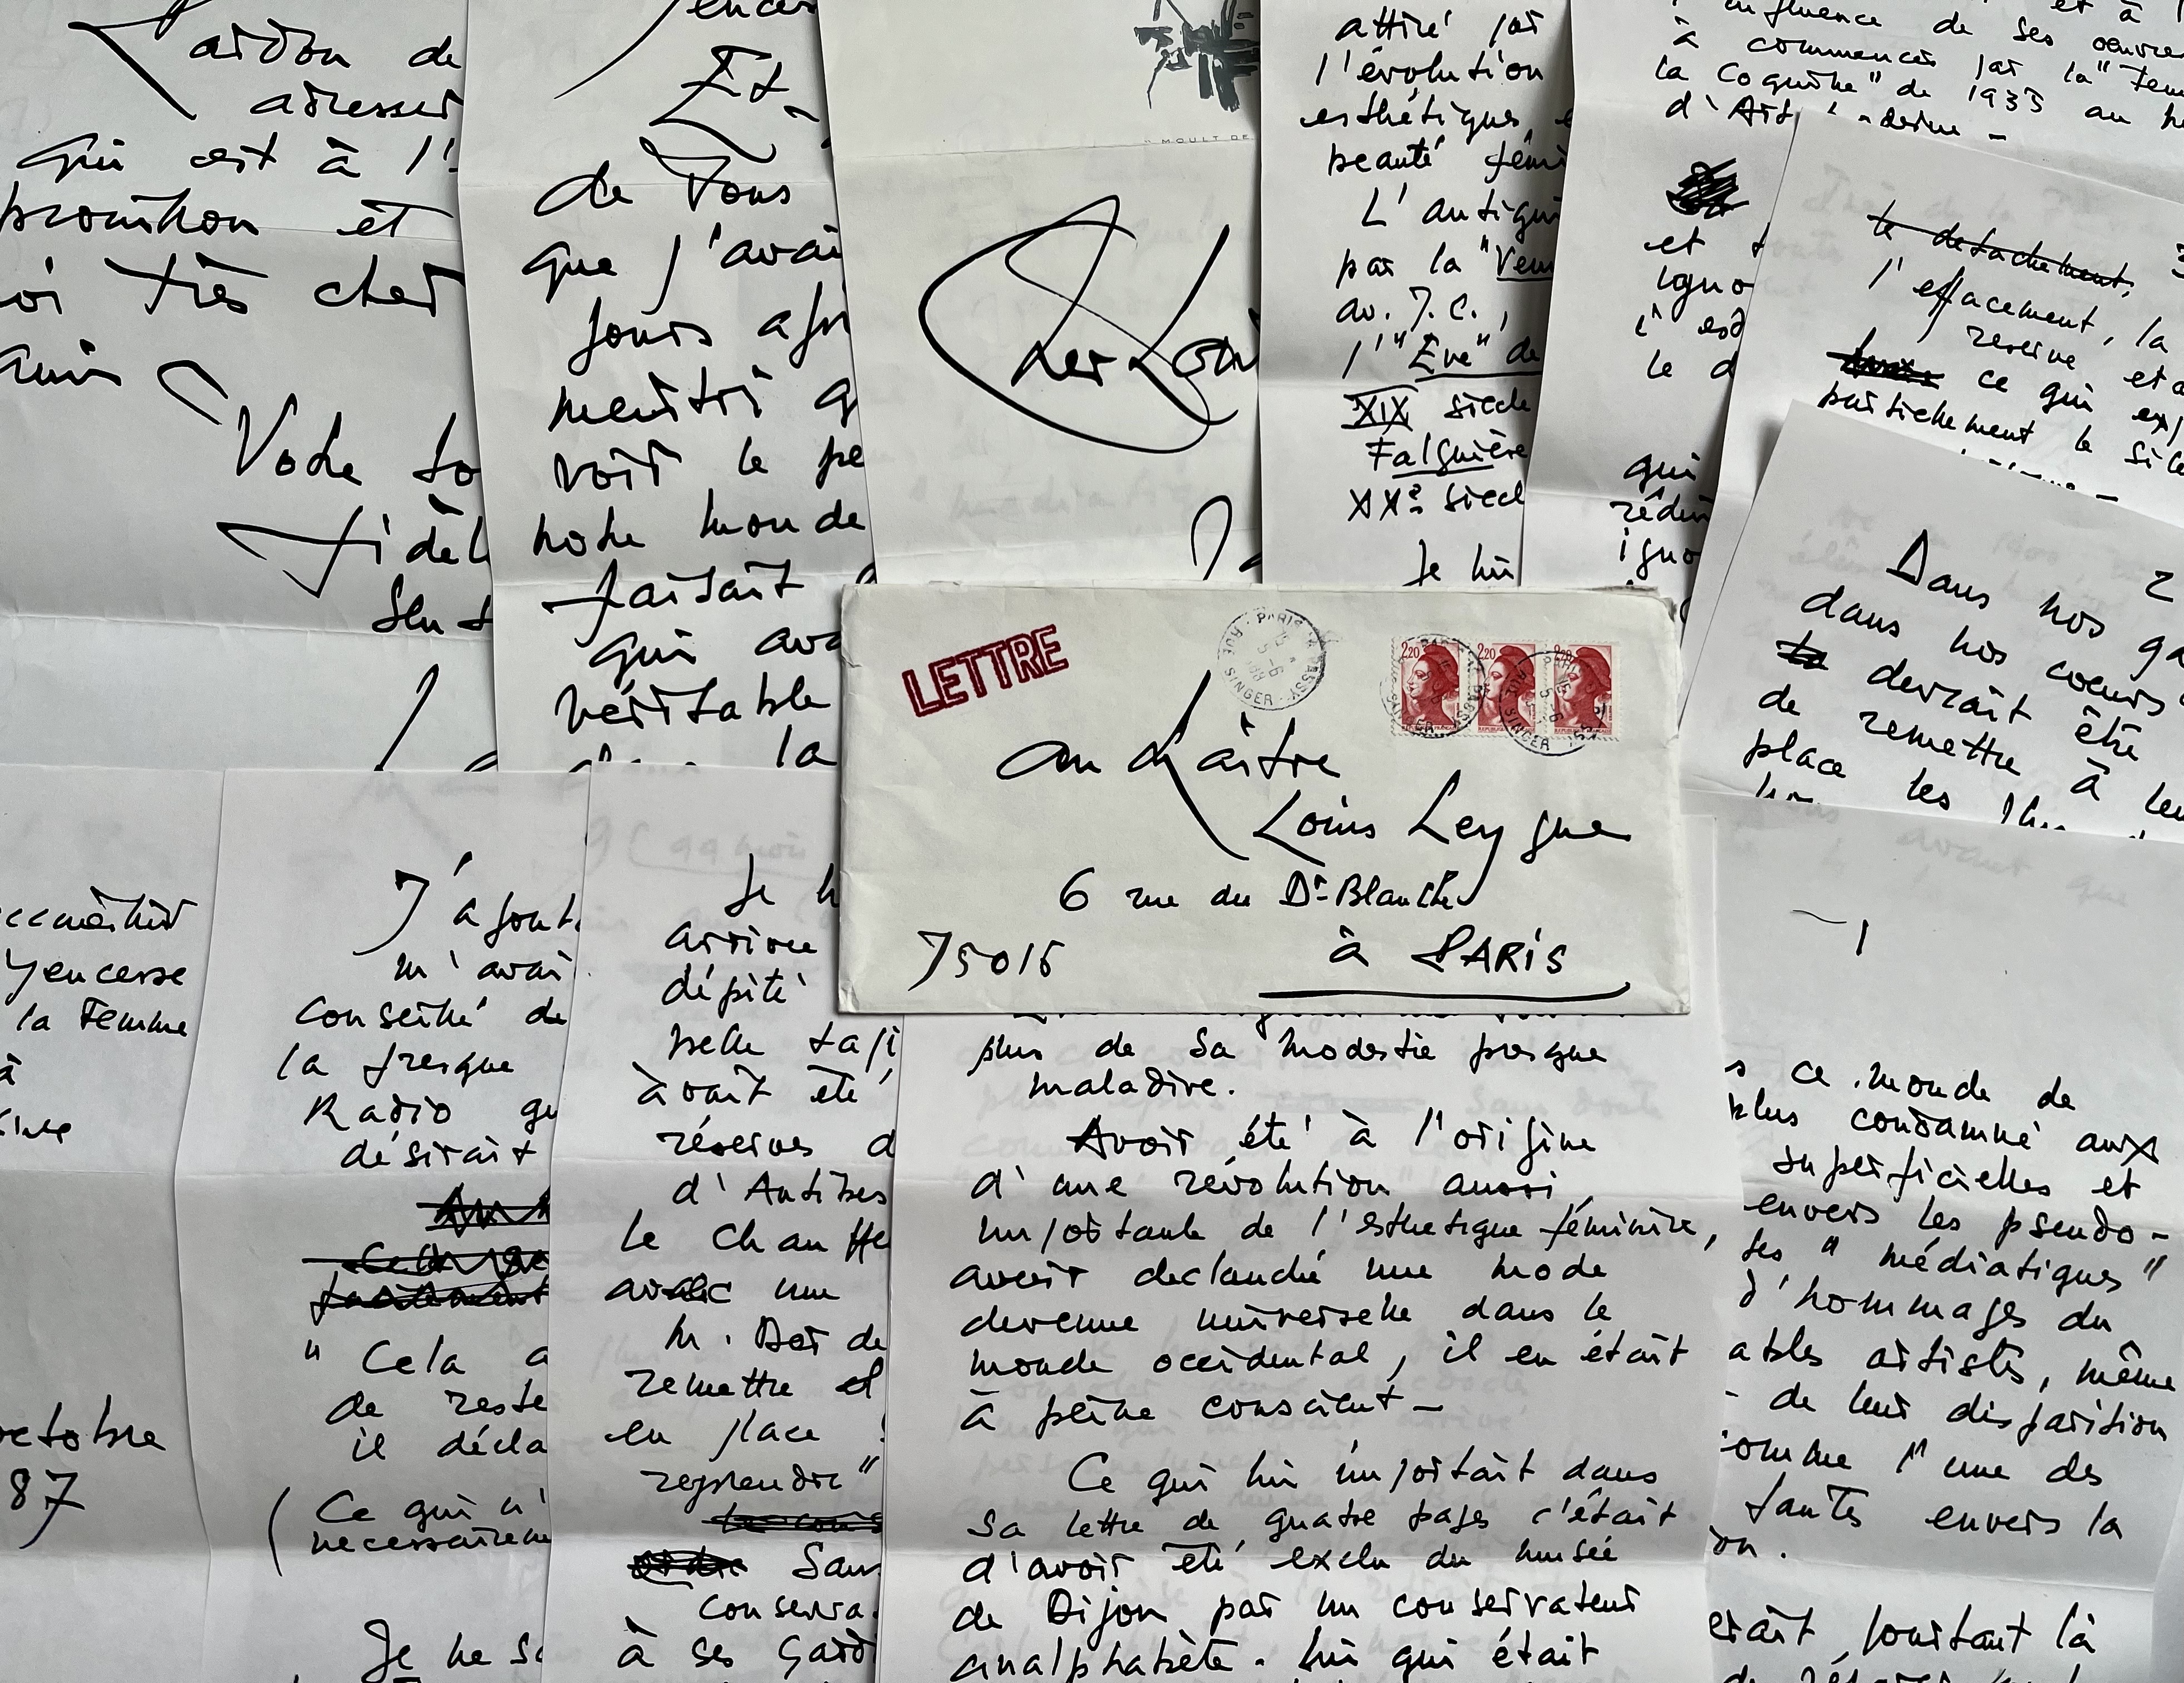 Pardon de
adresser
qui est à l'
promihon et
oi très cher
ami
Votre to
fidèl
et
de Vous
que j'avai
jours apr
meurtri q
voir le pe
notre monde
faisait
qui ava
véritable
la
"MOULT DE
Cher Lou
attiré par
l'évolution
esthétiques, e
beauté fémi
L'antiqui
par la "Venu
av. J.C.,
l'"Eve" de
XIX siècle
Falguière
XXe siecl
Je lui
influence de ses oeuvre
à commencer par la "Fem
la Coquille" de 1933 au
d'Art
et
igno
le d
qui
rédui
igno
le detachement,
l'effacement, la
reserve et
ce qui exp
partiellement le sile
2
Dans nos ga
dans nos coeurs
devrait être
de remettre à leu
place les
LETTRE
PARIS
RUE SINGER
2,20 2,20 2,20
au Maître
Louis Leygue
6 rue du Dr Blanche
75016 à PARIS
Yencesse
la Femme
à
octobre
87
J'ajout
m'avai
conseillé de
la fresque
Radio qu
désirait
"Cela a
de reste
il décla
(Ce qui n'
necessaireme
Je ne sa
Je
arrivee
dépité
belle tapi
avait été
réserves d
d'Antibes
le chauffe
avec une
M. Dor de
remettre et
en place
reprendre"
Sans
conserva
à ses gardi
plus de sa modestie presque
maladive.
Avoir été à l'origine
d'une révolution aussi
importante de l'esthetique féminine,
avoir declanché une mode
devenue universelle dans le
monde occidental, il en était
à peine conscient -
Ce qui lui importait dans
sa lettre de quatre pages c'était
d'avoir été exclu du musée
de Dijon par un conservateur
analphabète. Lui qui était
s ce monde de
plus condamné aux
superficielles et
envers les pseudo-
tes "médiatiques"
d'hommages du
ables artistes, même
- de leur disparition
comme l'une des
fautes envers la
on.
erait pourtant là